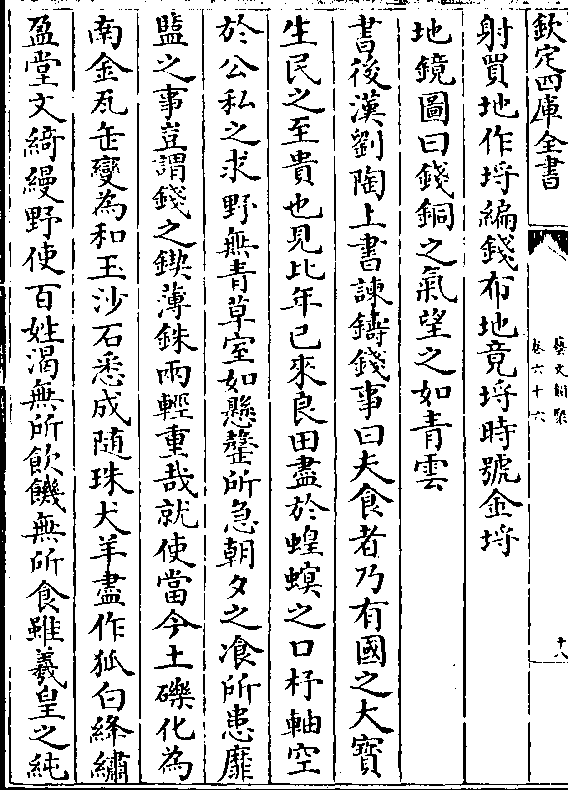 欽定四庫全書
藝文類聚
卷六十六
十八
射買地作埒編錢布地竟埒時號金埒
地鏡圖曰錢銅之氣望之如青雲
書後漢劉陶上書諫鑄錢事曰夫食者乃有國之大寶
生民之至貴也見比年已來良田盡於蝗螟之口杼軸空
於公私之求野無青草室如懸罄所急朝夕之飡所患靡
盬之事豈謂錢之鍥薄銖兩輕重哉就使當今土礫化為
南金瓦缶變為和玉沙石悉成随珠犬羊盡作狐白絳繡
盈堂文綺縵野使百姓渴無所飲饑無所食雖羲皇之純